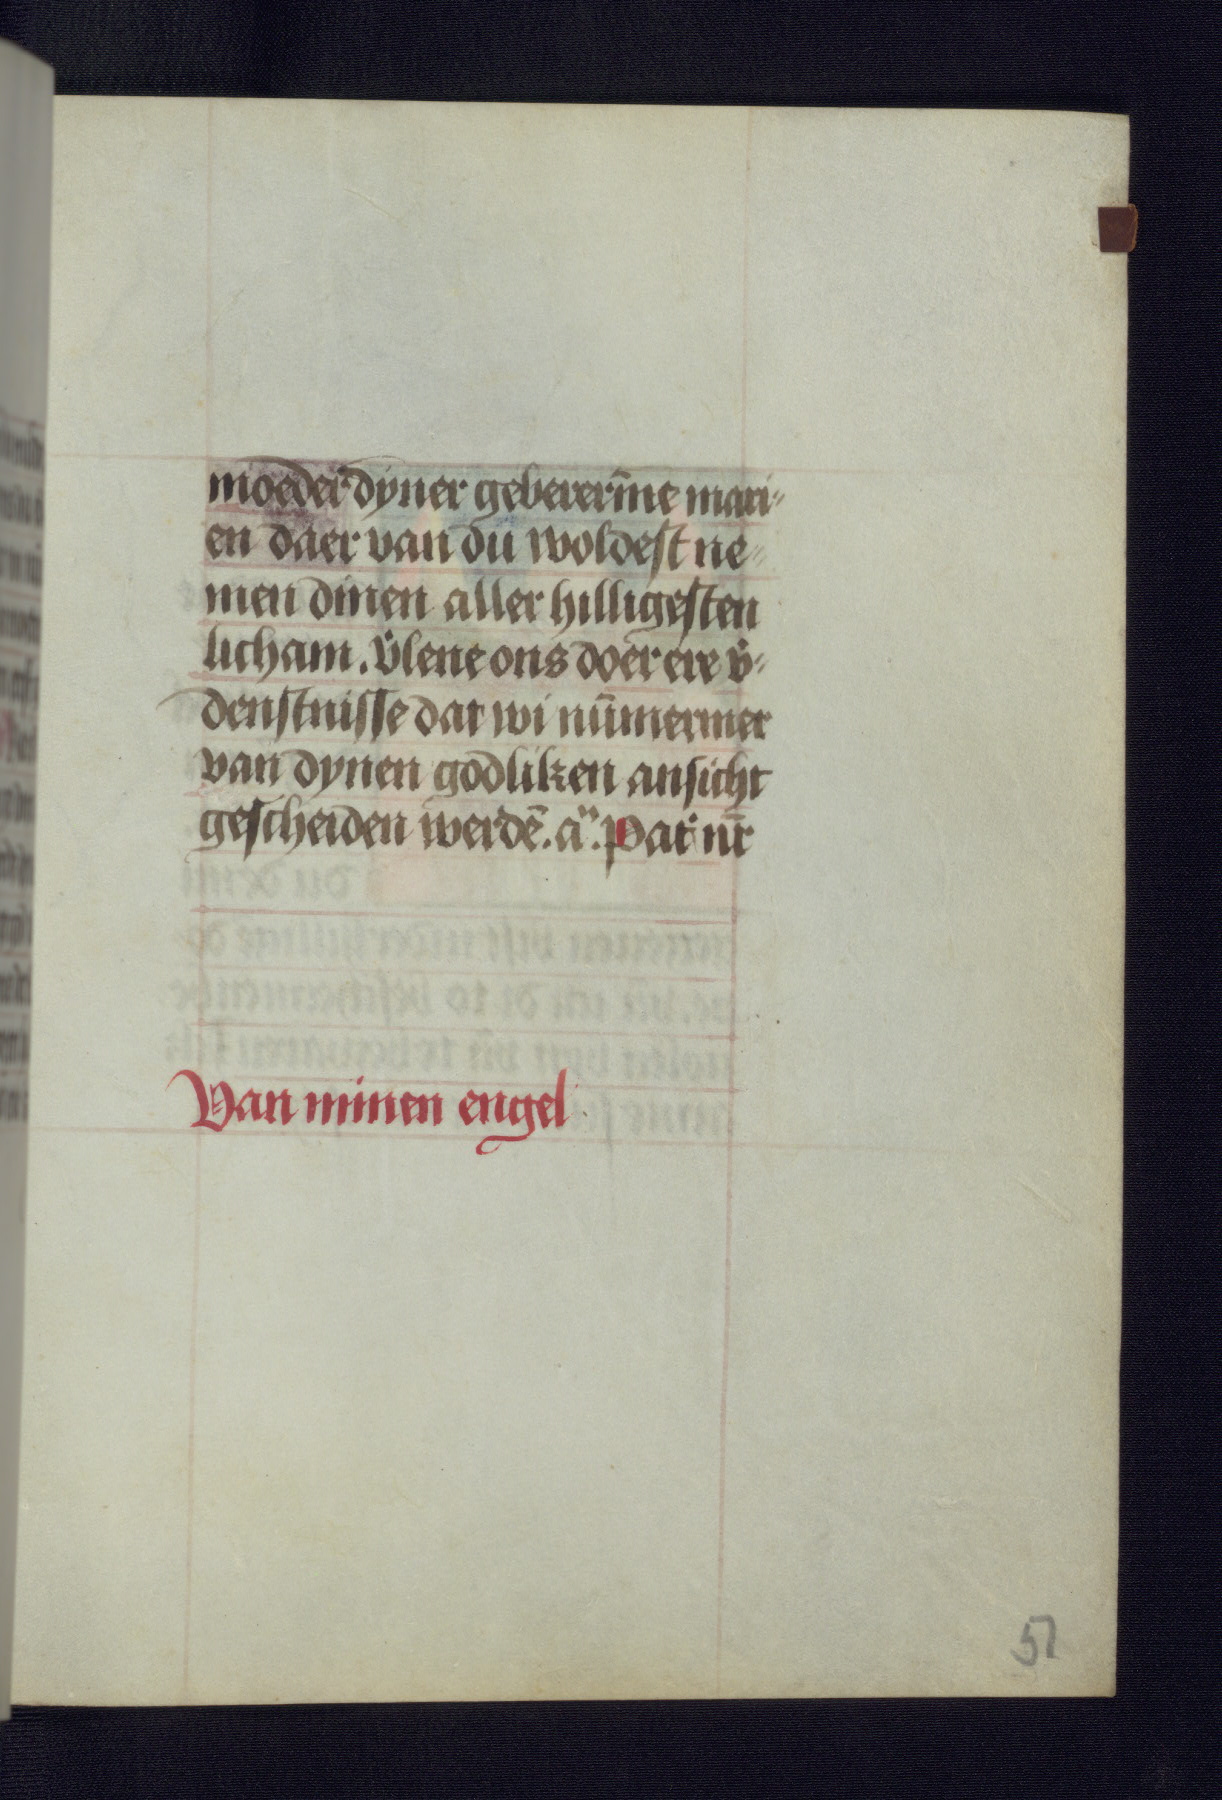 moeder dyner geberer̄īne mari-
en daer van du woldest ne-
men dinen aller hilligesten
licham. v̄lene ons doer ere v̄-
denstnisse dat wi nūmermer
van dynen godliken ansicht
gescheiden werdē. am̄. Pat̄ nr̄
Van minen engel
51